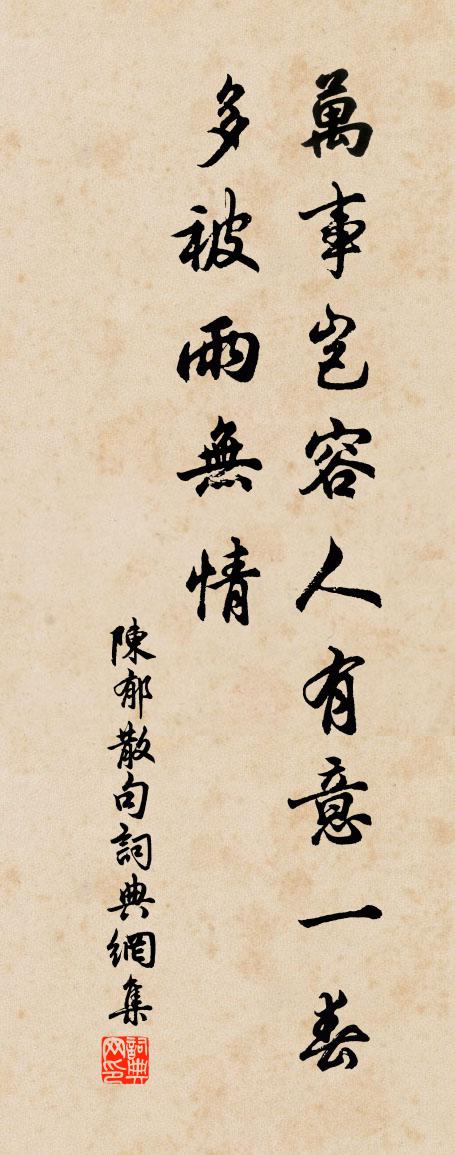 萬事豈容人有意一春
多被雨無情
陳郁散句詞典網集
詞典网印